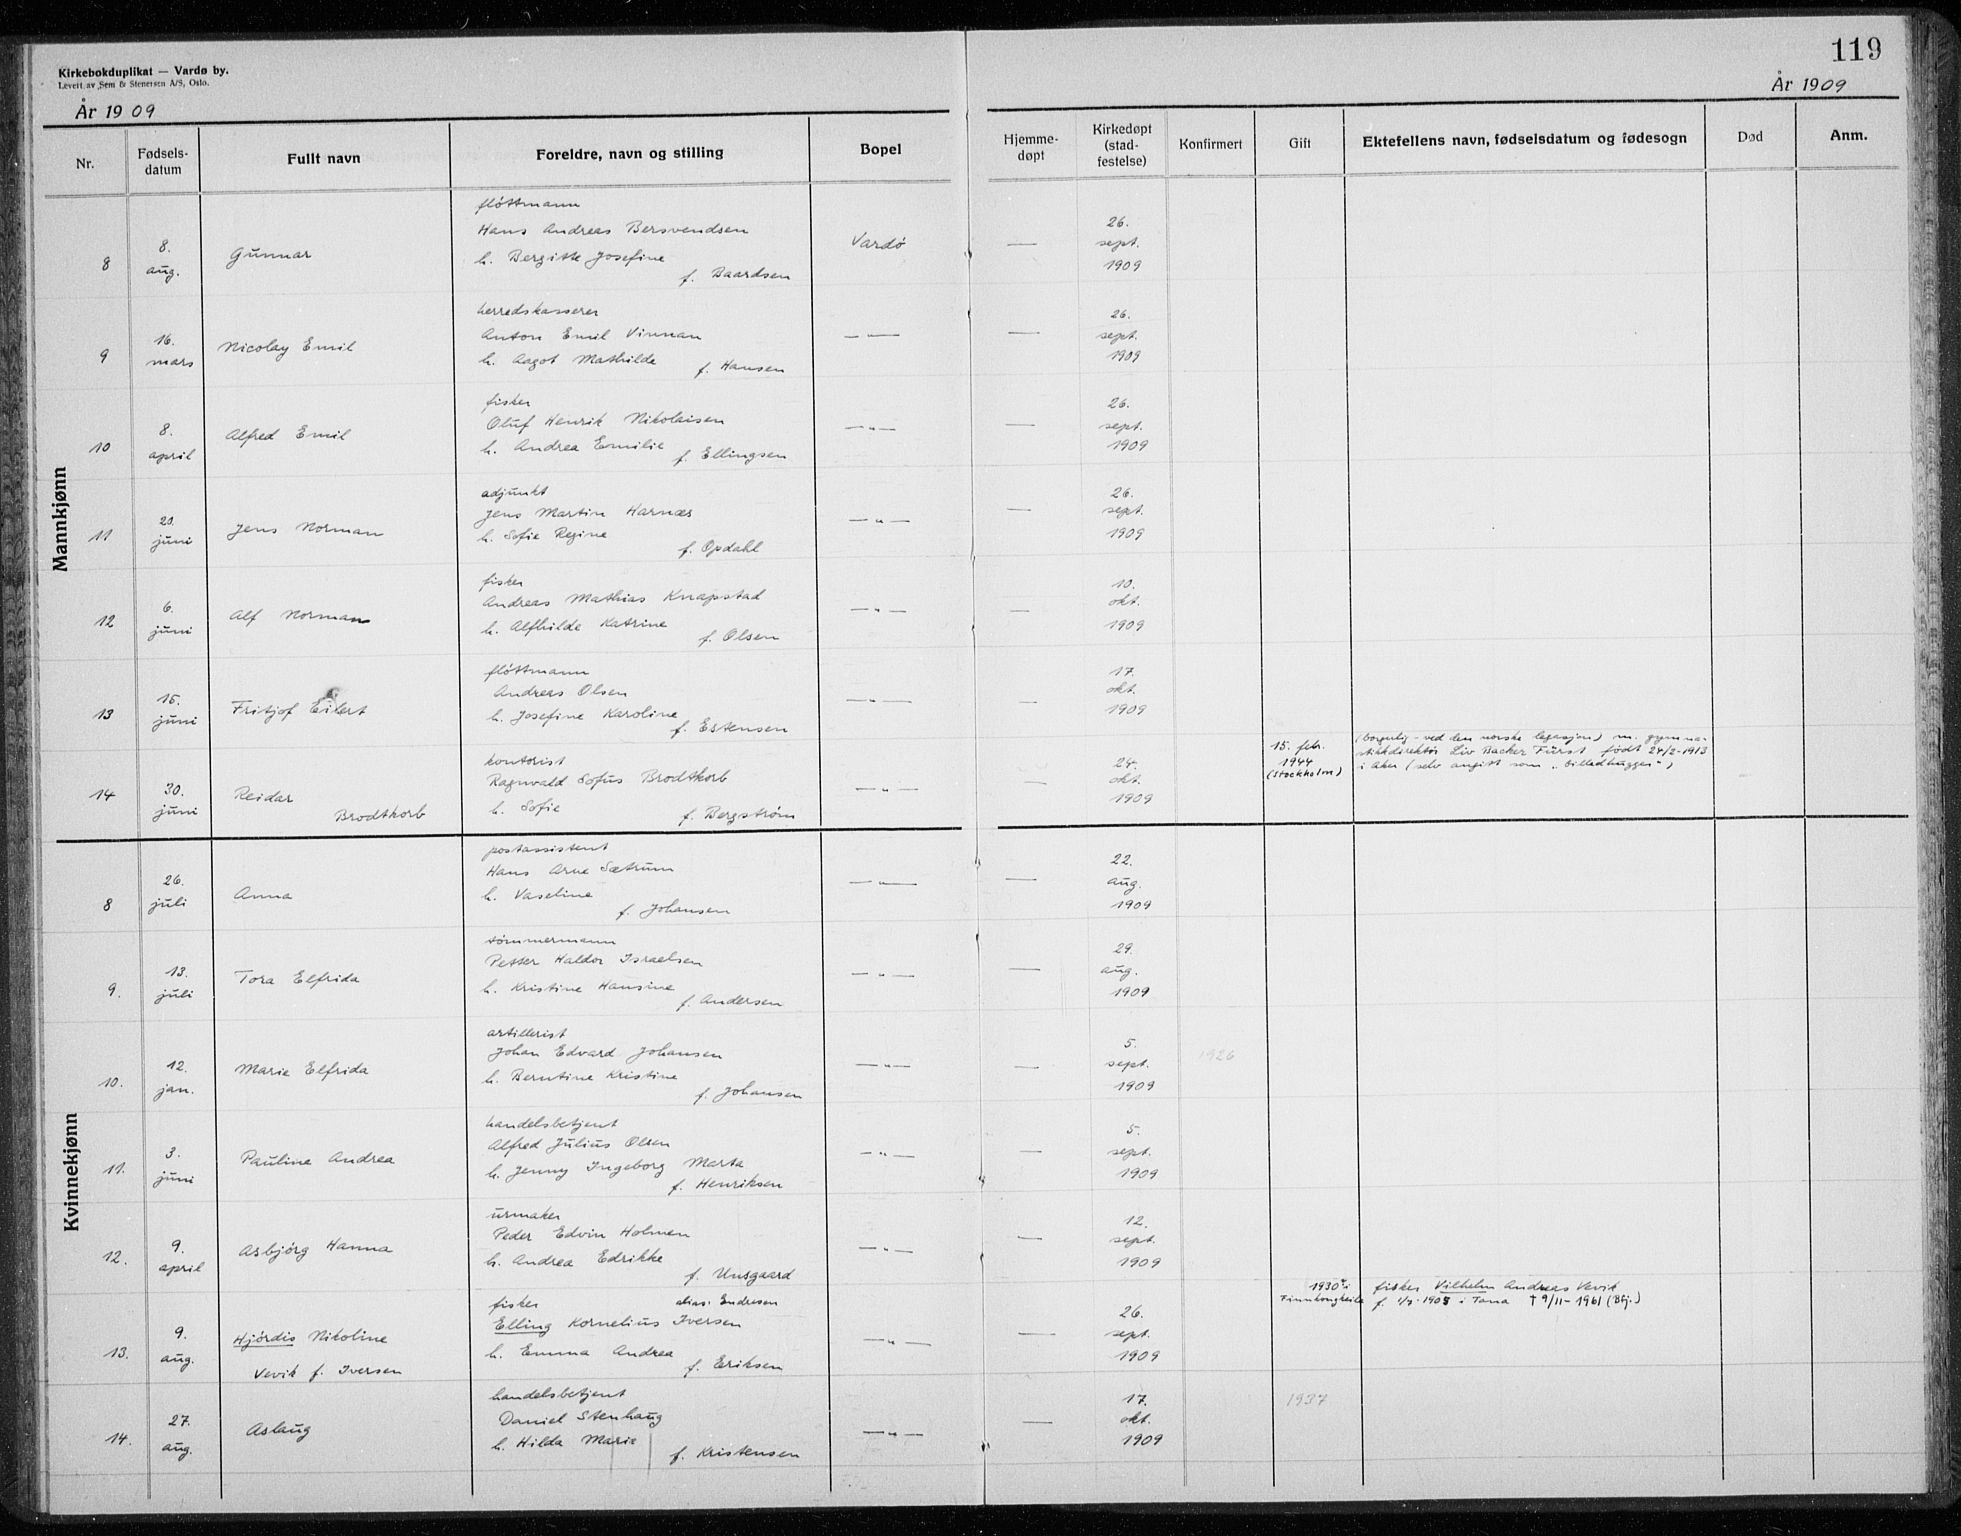 119
Kirkebokduplikat — Vardø by.
Levert av Sem & Stenersen A/S, Oslo.
År 1909
År 1909
Nr.
Fødsels-
datum
Fullt navn
Foreldre, navn og stilling
Bopel
Hjemme-
døpt
Kirkedøpt
(stad-
festelse)
Konfirmert
Gift
Ektefellens navn, fødselsdatum og fødesogn
Død
Anm.
Mannkjønn
8
8.
aug.
Gunnar
fløttmann
Hans Andreas Bersvendsen
h. Bergitte Josefine
f. Baardsen
Vardö
—
26.
sept.
1909
9
16.
mars
Nicolay Emil
herredskasserer
Anton Emil Vinnan
h. Aagot Mathilde
f. Hansen
— " —
—
26.
sept.
1909
10
8.
april
Alfred Emil
fisker
Oluf Henrik Nikolaisen
h. Andrea Emilie
f. Ellingsen
— " —
—
26.
sept.
1909
11
20.
juni
Jens Norman
adjunkt
Jens Martin Harnæs
h. Sofie Regine
f. Opdahl
— " —
—
26.
sept.
1909
12
6.
juni
Alf Norman
fisker
Andreas Mathias Knapstad
h. Alfhilde Katrine
f. Olsen
— " —
—
10.
okt.
1909
13
15.
juni
Fritjof Eilert
fløttmann
Andreas Olsen
h. Josefine Karoline
f. Estensen
— " —
—
17.
okt.
1909
14
30.
juni
Reidar
Brodtkorb
kontorist
Ragnvald Sofus Brodtkorb
h. Sofie
f. Bergström
— " —
—
24.
okt.
1909
15. febr.
1944
(Stockholm)
(borgerlig - ved den norske legasjon) m. gymna-
stikkdirektør Liv Backer Fürst født 24/2-1913
i Aker (selv angitt som „billedhugger")
Kvinnekjønn
8
26.
juli
Anna
postassistent
Hans Arne Sætrum
h. Vaseline
f. Johansen
— " —
—
22.
aug.
1909
9.
13.
juli
Tora Elfrida
tømmermann
Petter Haldor Israelsen
h. Kristine Hansine
f. Andersen
— " —
—
29.
aug.
1909
10.
12.
jan.
Marie Elfrida
artillerist
Johan Edvard Johansen
h. Berntine Kristine
f. Johansen
— " —
—
5.
sept.
1909
1926
11.
3.
juni
Pauline Andrea
handelsbetjent
Alfred Julius Olsen
h. Jenny Ingeborg Marta
f. Henriksen
— " —
—
5.
sept.
1909
12.
9.
april
Asbjörg Hanna
urmaker
Peder Edvin Holmen
h. Andrea Edrikke
f. Unsgaard
— " —
—
12.
sept.
1909
13.
9.
aug.
Hjördis Nikoline
Vevik f. Iversen
fisker alias: Endresen
Elling Kornelius Iversen
h. Emma Andrea
f. Eriksen
— " —
—
26.
sept.
1909
1930 i
Finnkongkeila
fisker Vilhelm Andreas Vevik
f. 1/7-1905 i Tana † 9/11-1961 (Btj.)
14.
27.
aug.
Aslaug
handelsbetjent
Daniel Stenhaug
h. Hilda Marie
f. Kristensen
— " —
—
17.
okt.
1909
1937